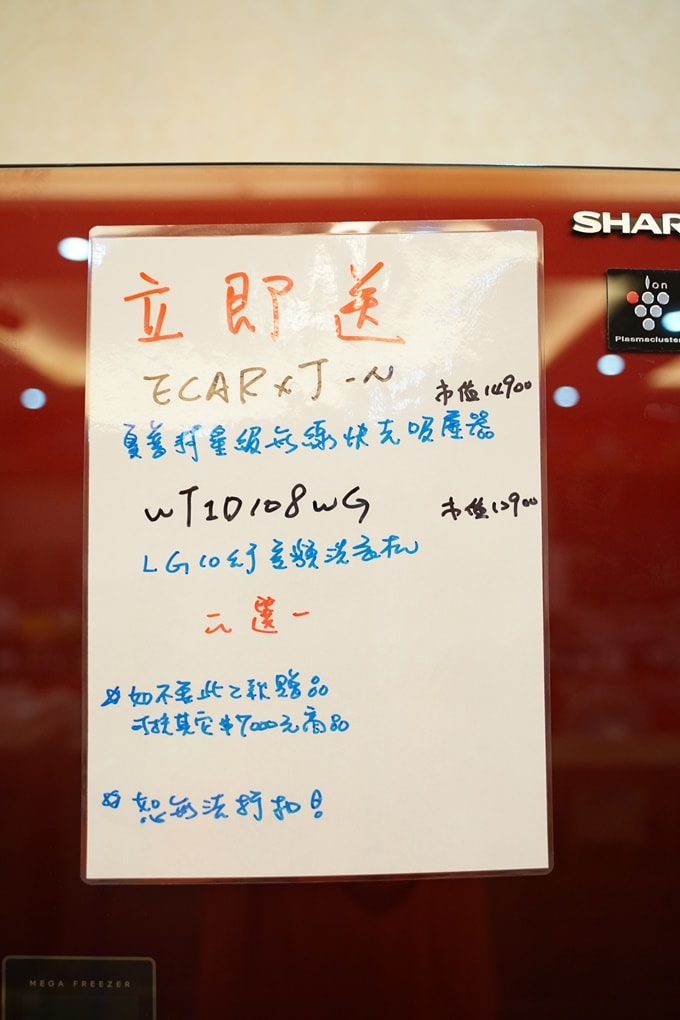 SHAR
Ion
Plasmacluster
立即送
ECARXJ-N 市值14900
夏普羽量級無線快充吸塵器
WT1D108WG 市值12900
LG10公斤變頻洗衣机
二選一
※如不要此2款贈品
可換其它$7000元商品
※恕無法折扣!
MEGA FREEZER